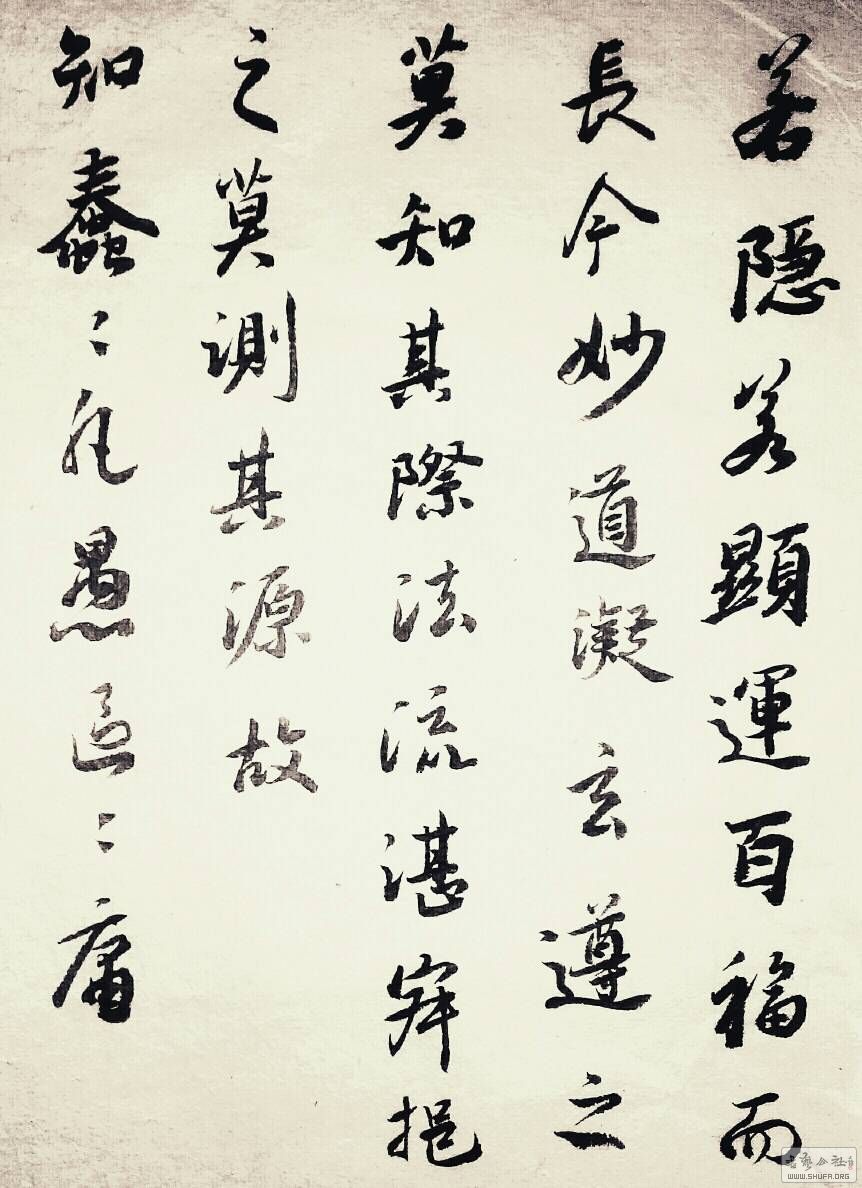 若隱若顯運百福而
長今妙道凝玄遵之
莫知其際法流湛寂挹
之莫測其源故
知蠢〻凡愚區〻庸
書藝公社
WWW.SHUFA.ORG